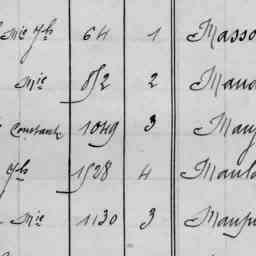 Mie Jh 64 1 Masso
Mie 852 2 Maud
Constant 1049 3 Mauj
Jh 1528 4 Maula
Mie 1130 3 Maupi